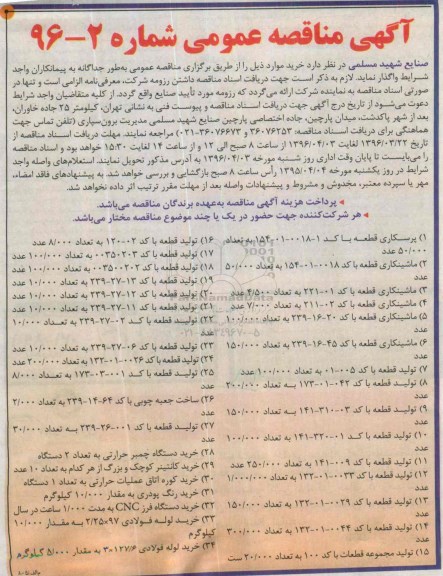 آگهی مناقصه عمومی شماره ۲-۹۶
صنایع شهید مسلمی در نظر دارد خرید موارد ذیل را از طریق برگزاری مناقصه عمومی به‌طور جداگانه به پیمانکاران واجد
شرایط واگذار نماید. لازم به ذکر است جهت دریافت اسناد مناقصه داشتن رزومه شرکت، معرفی‌نامه الزامی است و تنها در
صورتی اسناد مناقصه به نماینده شرکت ارائه می‌گردد که رزومه مورد تأیید صنایع واقع گردد. از کلیه متقاضیان واجد شرایط
دعوت می‌شود از تاریخ درج آگهی جهت دریافت اسناد مناقصه و پیوست فنی به نشانی تهران، کیلومتر ۲۵ جاده خاوران،
بعد از شهر پاکدشت، میدان پارچین، جاده اختصاصی پارچین صنایع شهید مسلمی مدیریت برون‌سپاری (تلفن تماس جهت
هماهنگی برای دریافت اسناد مناقصه: ۳۶۰۷۶۲۵۳ و ۳۶۰۷۶۶۷۳-۰۲۱) مراجعه نمایند. مهلت دریافت اسناد مناقصه از
تاریخ ۱۳۹۶/۰۳/۲۲ لغایت ۱۳۹۶/۰۴/۰۳ از ساعت ۸ صبح الی ۱۲ و از ساعت ۱۴ لغایت ۱۵:۳۰ خواهد بود و اسناد مناقصه
را می‌بایست تا پایان وقت اداری روز شنبه مورخه ۱۳۹۶/۰۴/۰۳ به آدرس مذکور تحویل نمایند. استعلام‌های واصله واجد
شرایط در روز یکشنبه مورخه ۱۳۹۵/۰۴/۰۴ رأس ساعت ۸ صبح بازگشایی و بررسی خواهد شد. به پیشنهادهای فاقد امضاء،
مهر یا سپرده معتبر، مخدوش و مشروط و پیشنهادات واصله بعد از مهلت مقرر ترتیب اثر داده نخواهد شد.
پرداخت هزینه آگهی مناقصه به‌عهده برندگان مناقصه می‌باشد.
هر شرکت‌کننده جهت حضور در یک یا چند موضوع مناقصه مختار می‌باشد.
۱) پرسکاری قطعه با کد ۱-۰۰۱۸-۰۱-۱۵۴ به تعداد
۵۰/۰۰۰ عدد
۲) ماشینکاری قطعه با کد ۰۰۱۸-۰۱-۱۵۴ به تعداد ۵۰/۰۰۰
عدد
۳) ماشینکاری قطعه با کد ۰۰۱-۲۲۱ به تعداد ۴/۵۰۰ عدد
۴) ماشینکاری قطعه با کد ۰۰۲-۲۱۱ به تعداد ۷/۰۰۰ عدد
۵) ماشینکاری قطعه با کد ۲۰-۱۶-۲۳۹ به تعداد ۱۰۰/۰۰۰
عدد
۶) ماشینکاری قطعه با کد ۴۵-۱۶-۲۳۹ به تعداد ۱۵۰/۰۰۰
عدد
۷) تولید قطعه با کد ۰۰۵-۰۱ به تعداد ۱۰۰/۰۰۰ عدد
۸) تولید قطعه با کد ۰۴۲-۰۱-۱۷۳ به تعداد ۲۰۰/۰۰۰
عدد
۹) تولید قطعه با کد ۰۳-۳۱۰-۱۴۱ به تعداد ۱۵۰/۰۰۰
عدد
۱۰) تولید قطعه با کد ۰۱-۳۲۰-۱۴۱ به تعداد ۱۰۰/۰۰۰
عدد
۱۱) تولید قطعه با کد ۰۰۹-۱۴۱ به تعداد ۲۵۰/۰۰۰ عدد
۱۲) تولید قطعه با کد ۰۰۳۳-۰۱-۱۳۲ به تعداد ۱/۰۰۰/۰۰۰
عدد
۱۳) تولید قطعه با کد ۰۰۲۹-۰۱-۱۳۲ به تعداد ۱۵۰/۰۰۰
عدد
۱۴) تولید قطعه با کد ۰۰۴۴-۰۱-۱۳۲ به تعداد ۳۰۰/۰۰۰
عدد
۱۵) تولید مجموعه قطعات با کد ۱۰۰ به تعداد ۲۰/۰۰۰ ست
۱۶) تولید قطعه با کد ۰۰۲-۱۲ به تعداد ۸/۰۰۰ عدد
۱۷) تولید قطعه با کد ۰۰۳۵۰۲۰۳ به تعداد ۱۰۰/۰۰۰ عدد
۱۸) تولید قطعه با کد ۰۰۳۵۰۰۲۰۲ به تعداد ۱۰۰/۰۰۰ عدد
۱۹) تولید قطعه با کد ۱۳-۲۷-۲۳۹ به تعداد ۱۰/۰۰۰ عدد
۲۰) تولید قطعه با کد ۱۲-۲۷-۲۳۹ به تعداد ۱۰/۰۰۰ عدد
۲۱) تولید قطعه با کد ۱۱-۲۷-۲۳۹ به تعداد ۱۰/۰۰۰ عدد
۲۲) تولید قطعه با کد ۰۲-۲۷-۲۳۹ به تعداد ۱۰/۰۰۰
عدد
۲۳) تولید قطعه با کد ۰۶-۲۷-۲۳۹ به تعداد ۱۰/۰۰۰ عدد
۲۴) تولید قطعه با کد ۰۰۲۶-۰۱-۱۳۲ به تعداد ۲۰۰/۰۰۰ عدد
۲۵) تولید قطعه با کد ۰۰۱-۰۳-۱۷۳ به تعداد ۸/۰۰۰
عدد
۲۶) ساخت جعبه چوبی با کد ۶۴-۱۴-۲۳۹ به تعداد ۲/۰۰۰
عدد
۲۷) تولید قطعه با کد ۰۰۱-۲۶-۲۳۹ به تعداد ۳۰/۰۰۰
عدد
۲۸) خرید دستگاه چمبر حرارتی به تعداد ۲ دستگاه
۲۹) خرید کانتینر کوچک و بزرگ از هر کدام به تعداد ۱۰ عدد
۳۰) خرید کوره اتاق عملیات حرارتی به تعداد ۱ دستگاه
۳۱) خرید رنگ پودری به مقدار ۱۰/۰۰۰ کیلوگرم
۳۲) خرید دستگاه فرز CNC به مدت ۱/۰۰۰ ساعت در سال
۳۳) خرید لوله فولادی ۲/۲۵×۹۷ به مقدار ۱۰/۰۰۰
کیلوگرم
۳۴) خرید لوله فولادی ۳۰×۱۲۷/۶ به مقدار ۵/۰۰۰ کیلوگرم